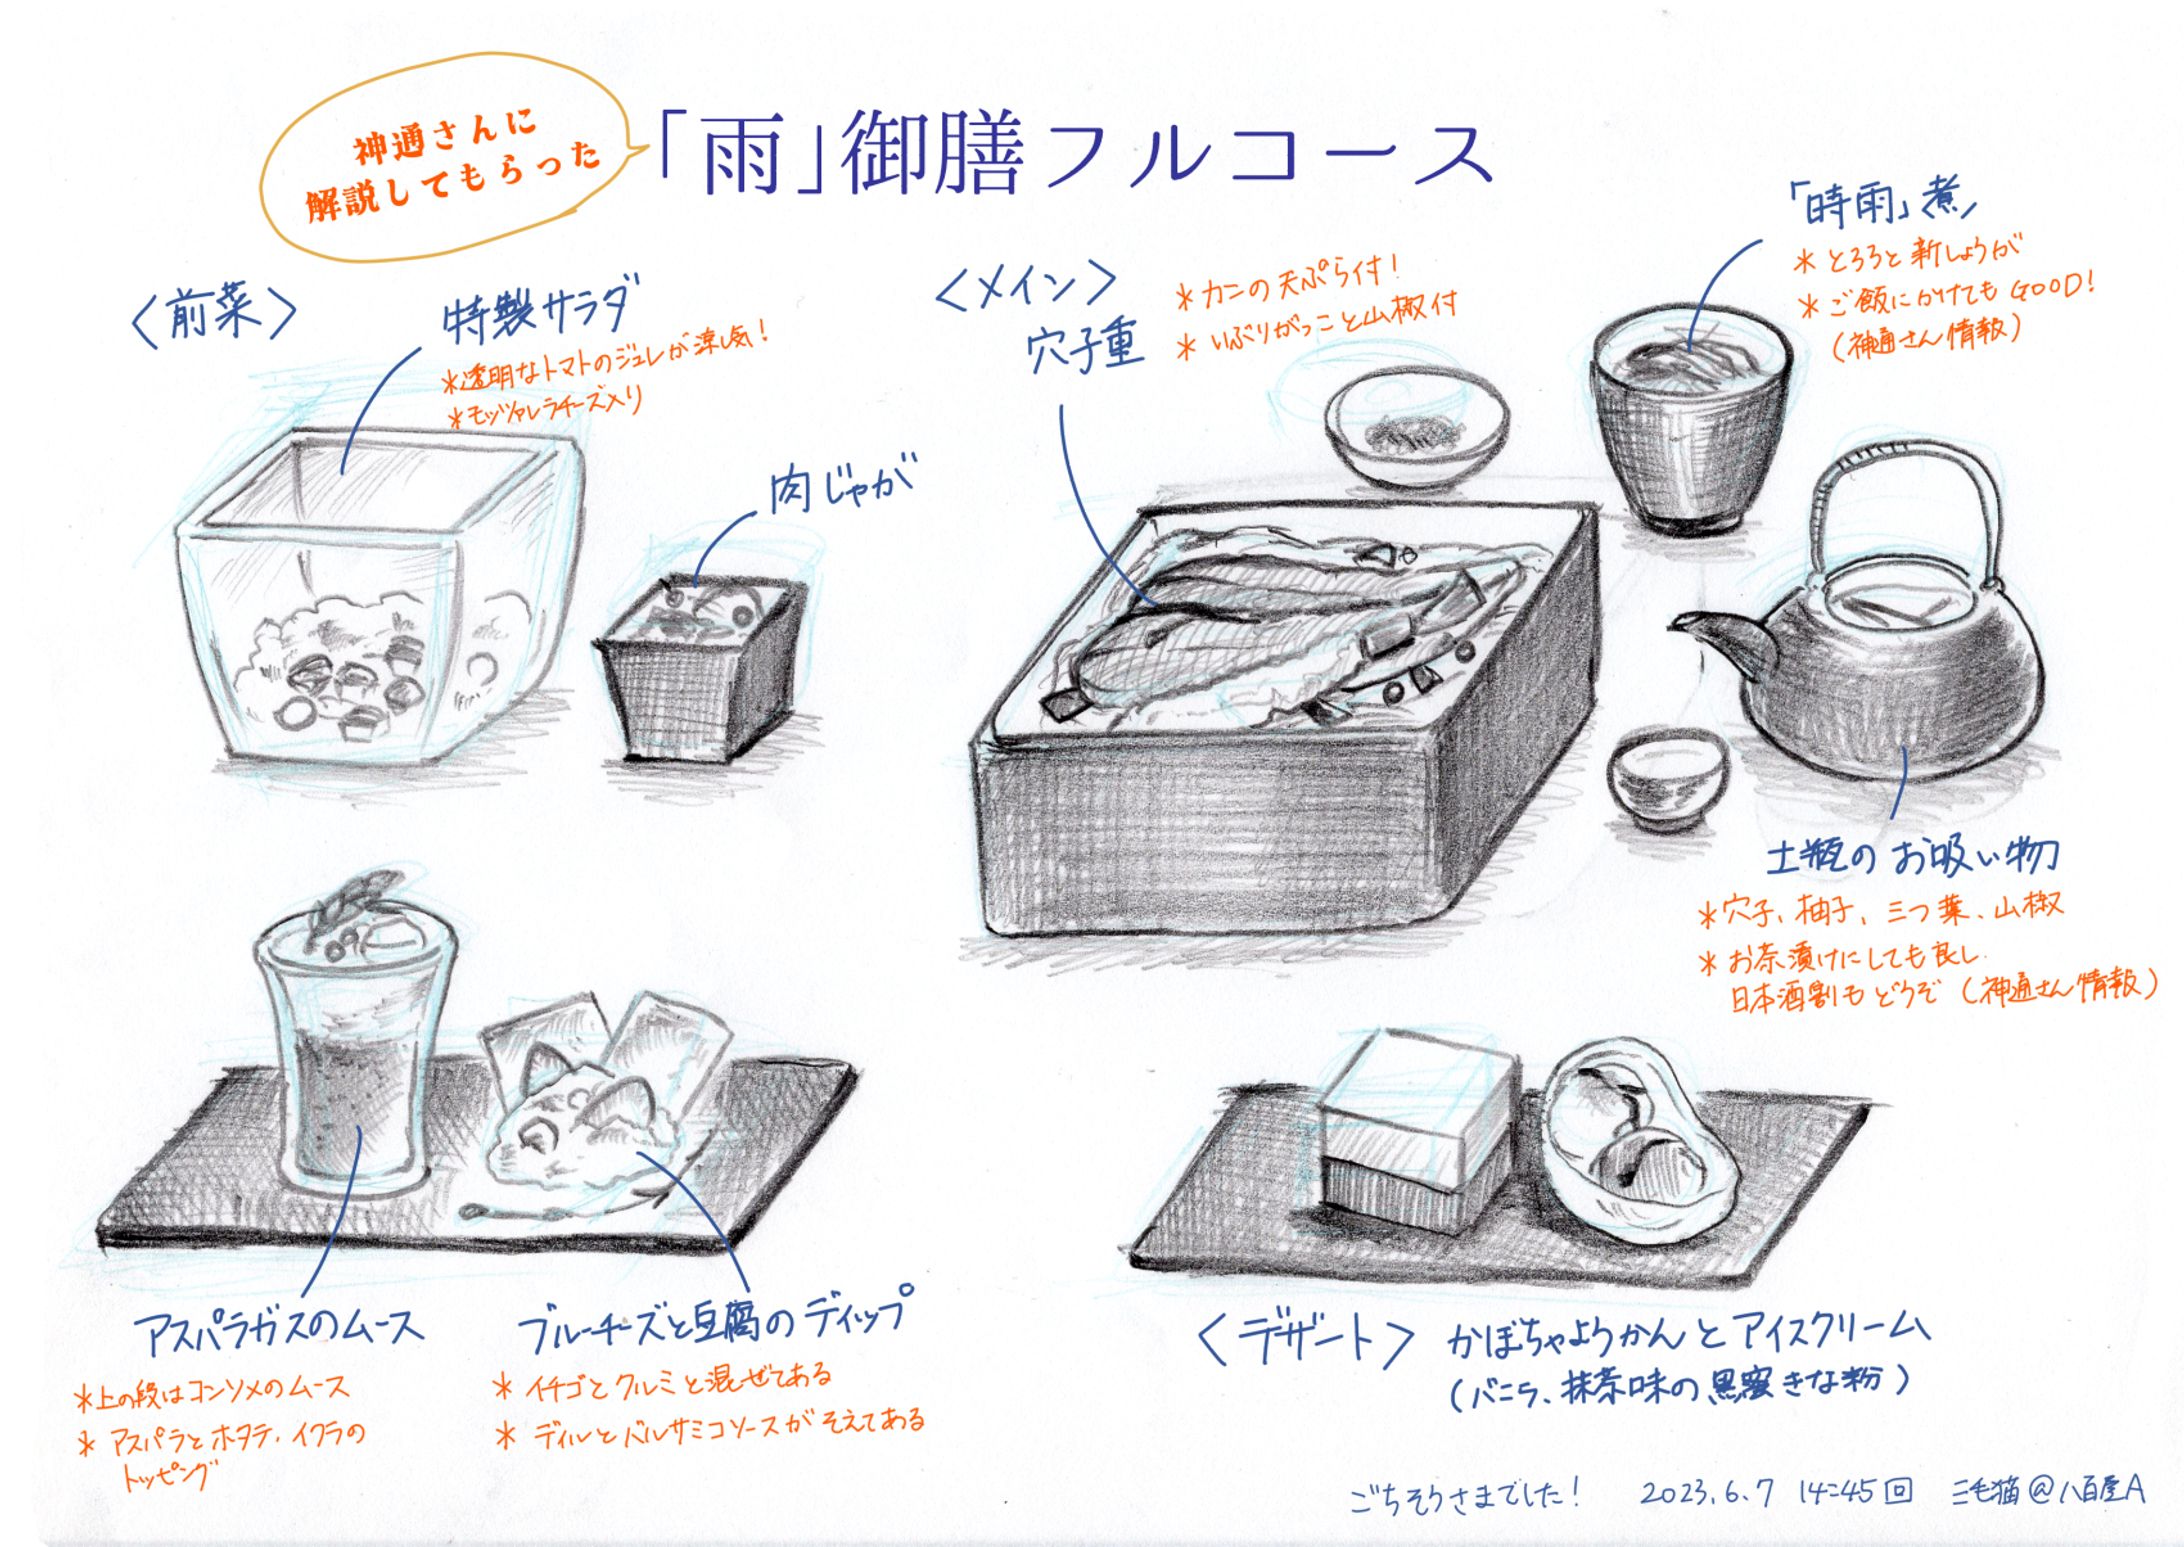 神通さんに
解説してもらった
「雨」御膳フルコース
〈前菜〉
特製サラダ
＊透明なトマトのジュレが涼し気！
＊モッツァレラチーズ入り
肉じゃが
アスパラガスのムース
＊上の段はコンソメのムース
＊アスパラとホタテ、イクラの
トッピング
ブルーチーズと豆腐のディップ
＊イチゴとクルミと混ぜてある
＊ディルとバルサミコソースがそえてある
〈メイン〉
穴子重
＊カニの天ぷら付！
＊いぶりがっこと山椒付
「時雨」煮
＊とろろと新しょうが
＊ご飯にかけてもGOOD！
（神通さん情報）
土瓶のお吸い物
＊穴子、柚子、三つ葉、山椒
＊お茶漬けにしても良し
日本酒割もどうぞ（神通さん情報）
〈デザート〉かぼちゃようかんとアイスクリーム
（バニラ、抹茶味の黒蜜きな粉）
ごちそうさまでした！ 2023.6.7 14:45回 三毛猫@八百屋A